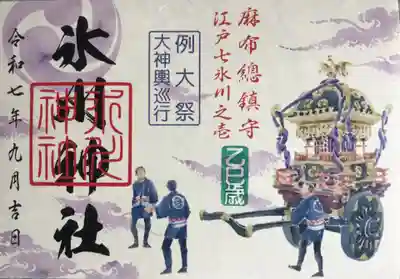 麻布總鎮守
江戸七氷川之壱
乙巳歳
例大祭
大神輿巡行
氷川神社
氷川神社
令和七年九月吉日